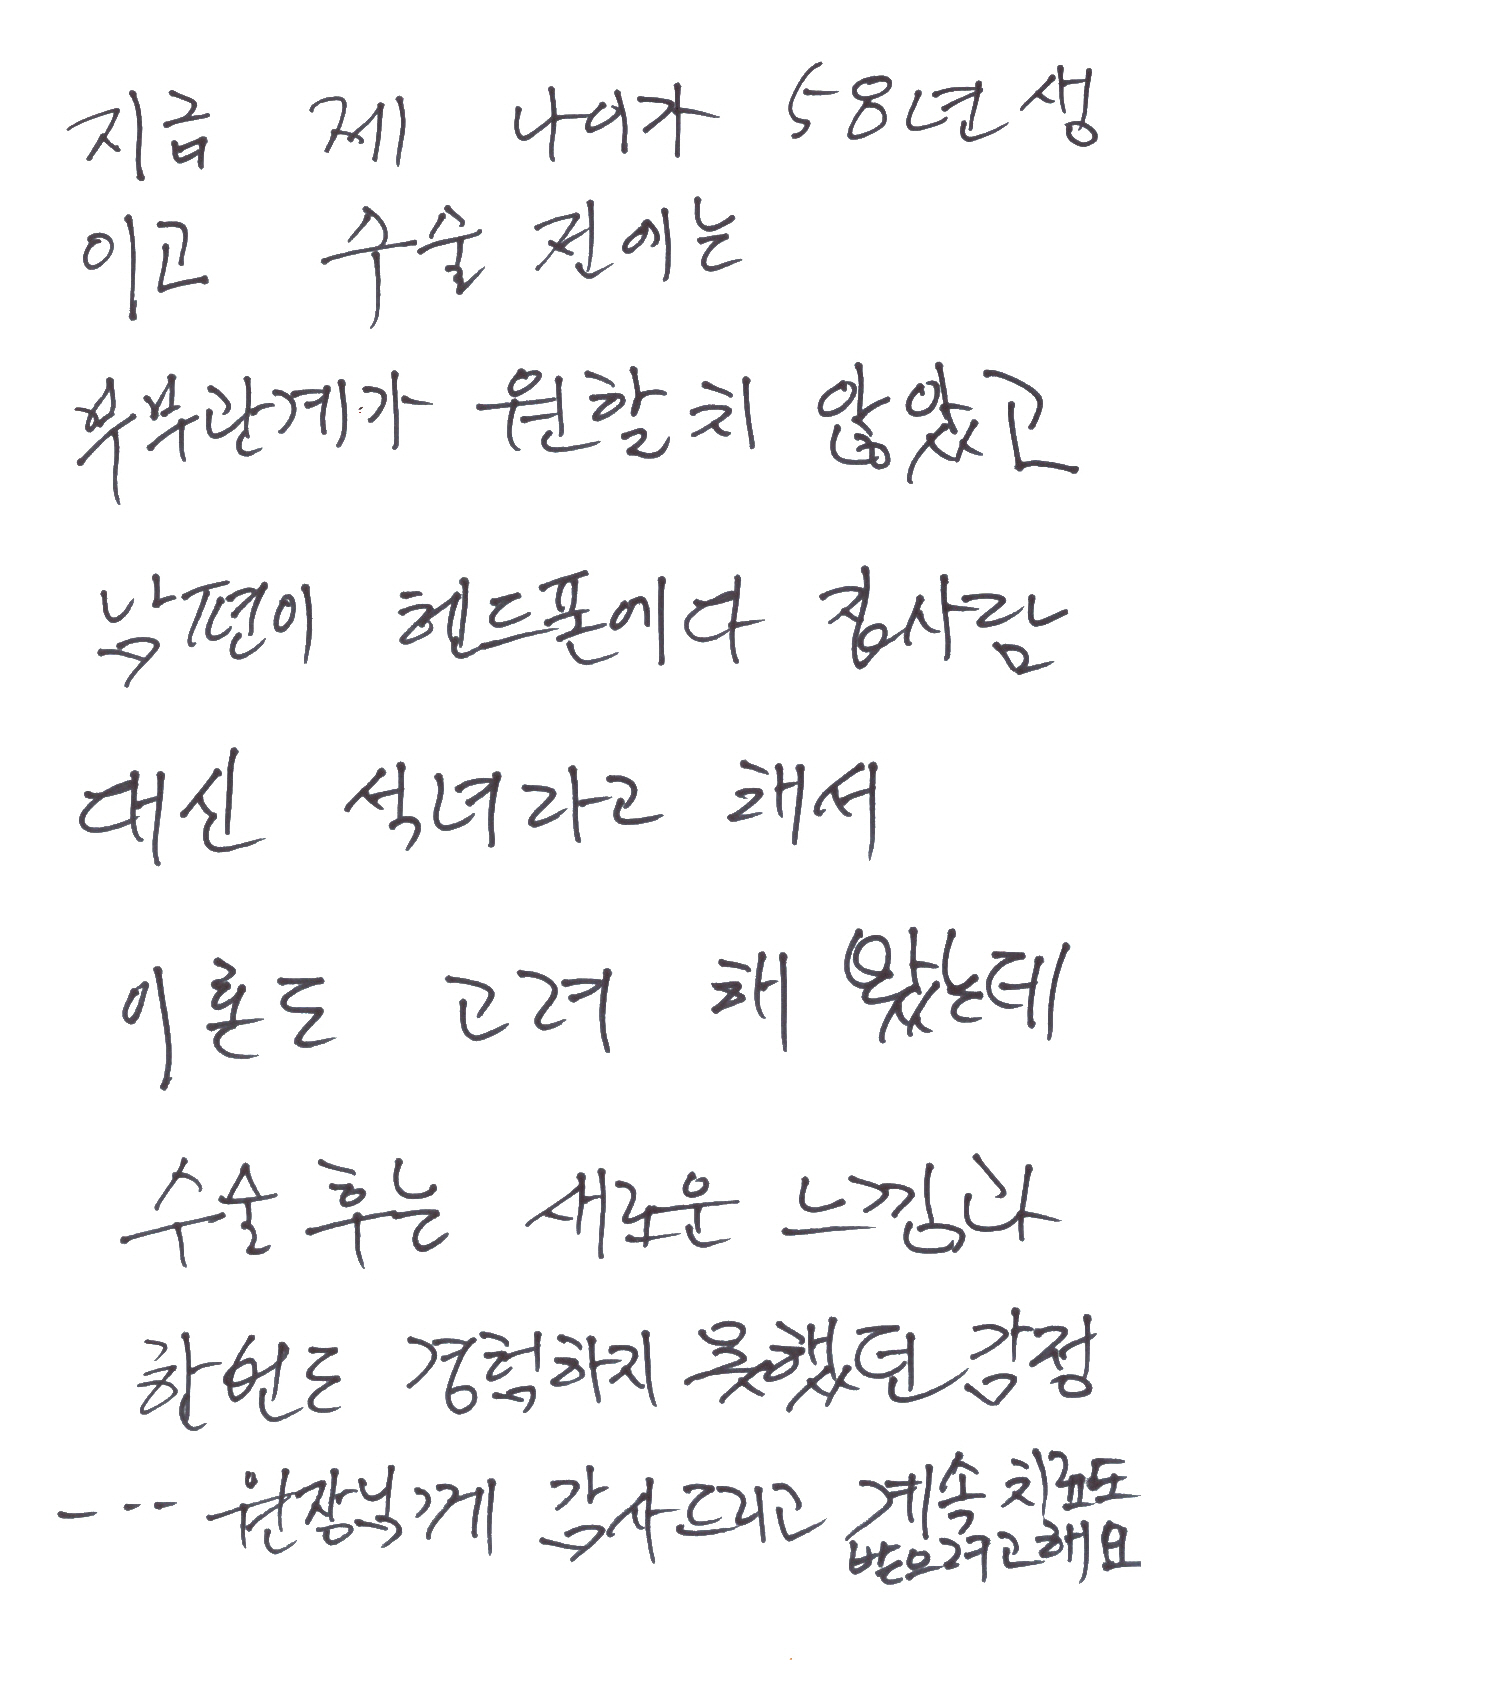 지금 제 나이가 58년생
이고 수술 전에는
부부관계가 원할치 않았고
남편이 핸드폰에다 집사람
대신 석녀라고 해서
이혼도 고려 해 왔는데
수술 후는 새로운 느낌과
한번도 경험하지 못했던 감정
--- 원장님게 감사드리고 계속 치료도
받으려고 해요